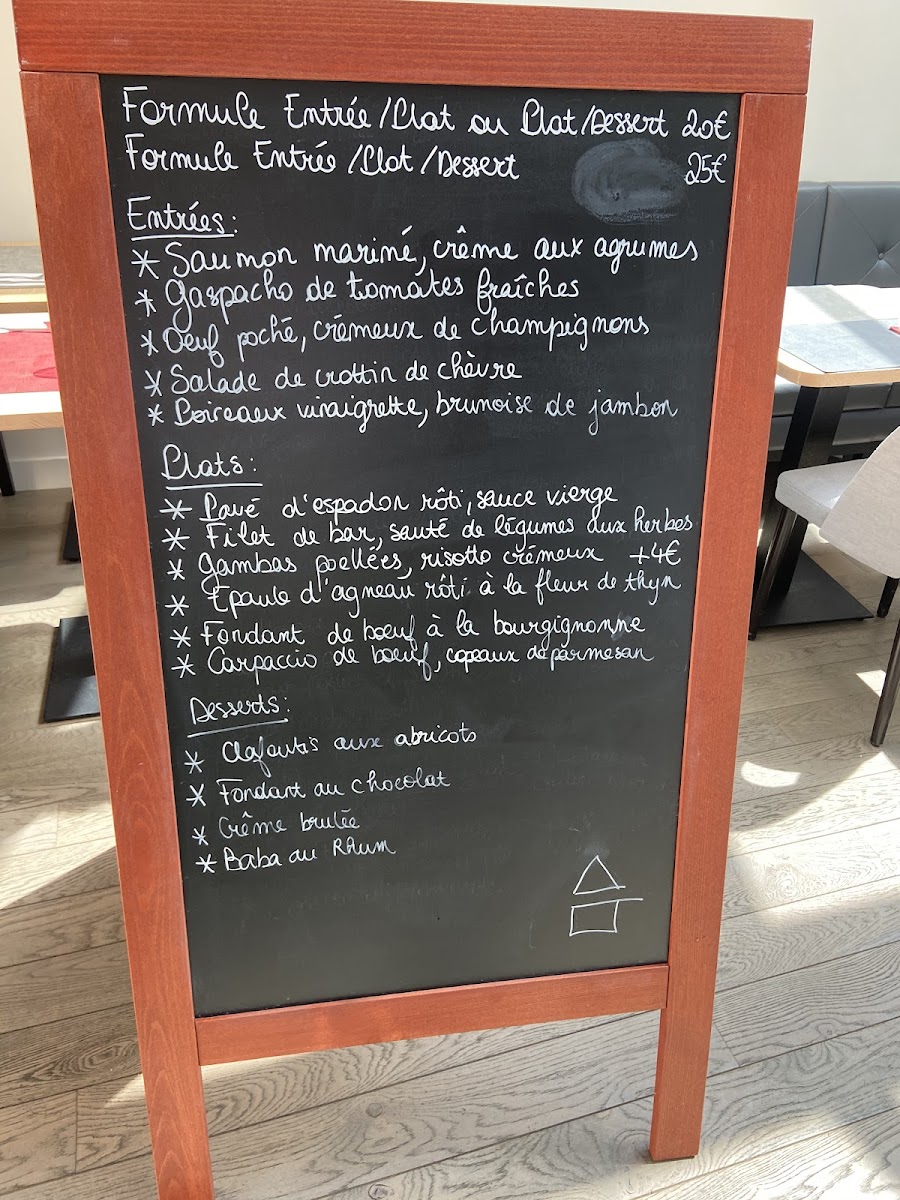 Formule Entrée/Plat ou Plat/Dessert 20€
Formule Entrée/Plat/Dessert 25€
Entrées:
* Saumon mariné, crême aux agrumes
* Gaspacho de tomates fraîches
* Oeuf poché, crémeux de champignons
* Salade de crottin de chèvre
* Poireaux vinaigrette, brunoise de jambon
Plats:
* Pavé d'espadon rôti, sauce vierge
* Filet de bar, sauté de légumes aux herbes
* Gambas poellées, risotto crémeux +4€
* Epaule d'agneau rôti à la fleur de thyn
* Fondant de bœuf à la bourgignonne
* Carpaccio de bœuf, copeaux de parmesan
Desserts:
* Clafoutis aux abricots
* Fondant au chocolat
* Crême brulée
* Baba au Rhum